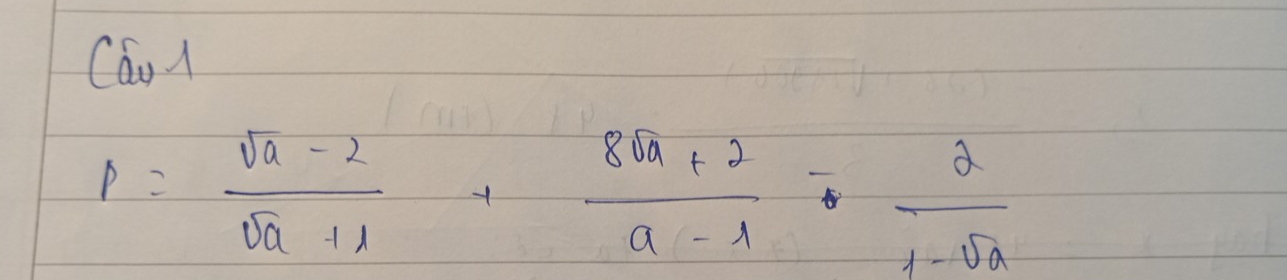 Câu 1
P = (√a - 2)/(√a + 1) + (8√a + 2)/(a - 1) - 2/(1 - √a)